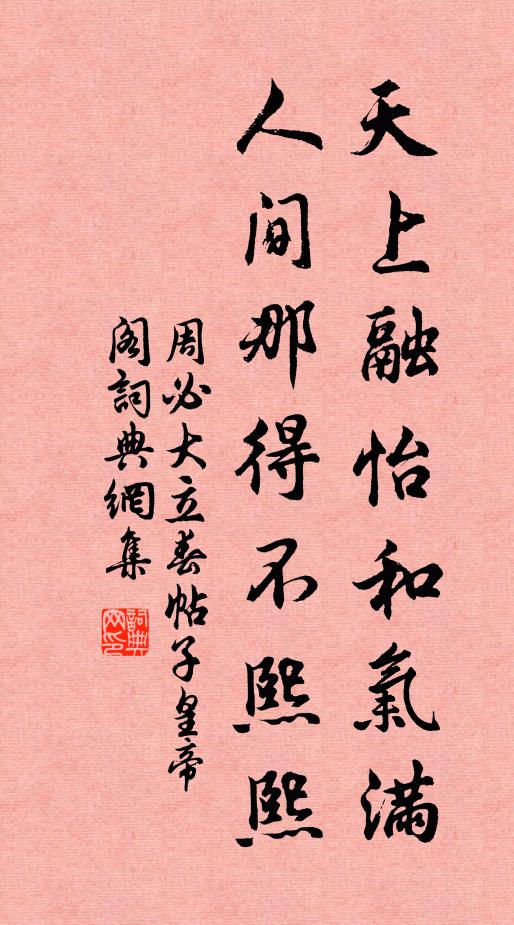 天上融怡和氣滿
人间那得不熙熙
周必大立春帖子皇帝
阁詞典網集
詞典网印